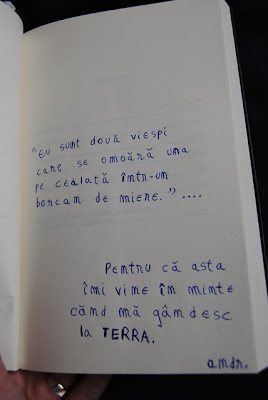 "Eu sunt două viespi
care se omoară una
pe cealată într-un
borcam de miere." ....
Pentru că asta
îmi vine îm minte
când mă gândesc
la TERRA.
amdr.